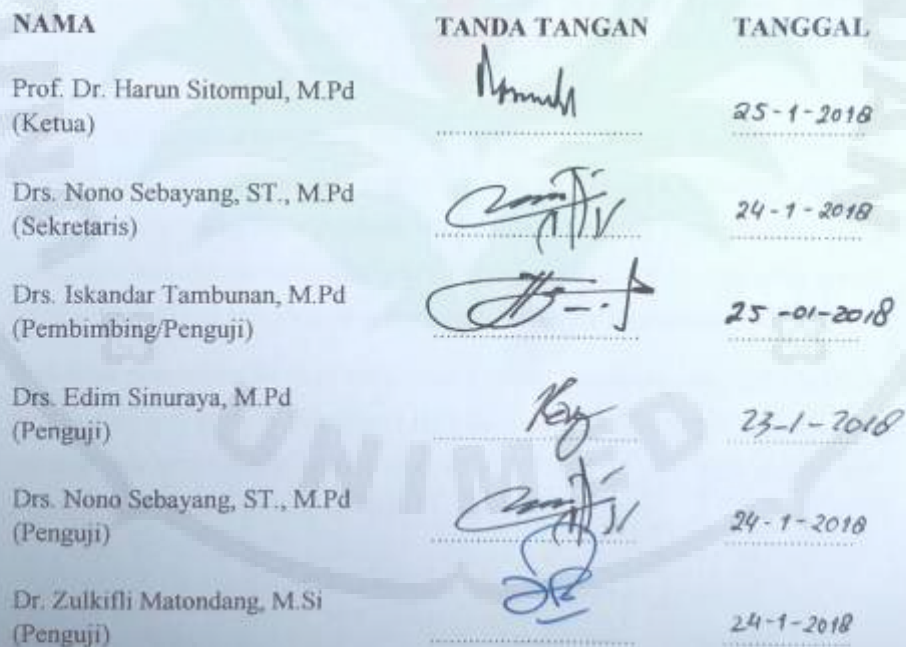 NAMA TANDA TANGAN TANGGAL
Prof. Dr. Harun Sitompul, M.Pd
(Ketua) 25-1-2018
Drs. Nono Sebayang, ST., M.Pd
(Sekretaris) 24-1-2018
Drs. Iskandar Tambunan, M.Pd
(Pembimbing/Penguji) 25-01-2018
Drs. Edim Sinuraya, M.Pd
(Penguji) 23-1-2018
UNIMED
Drs. Nono Sebayang, ST., M.Pd
(Penguji) 24-1-2018
Dr. Zulkifli Matondang, M.Si
(Penguji) 24-1-2018